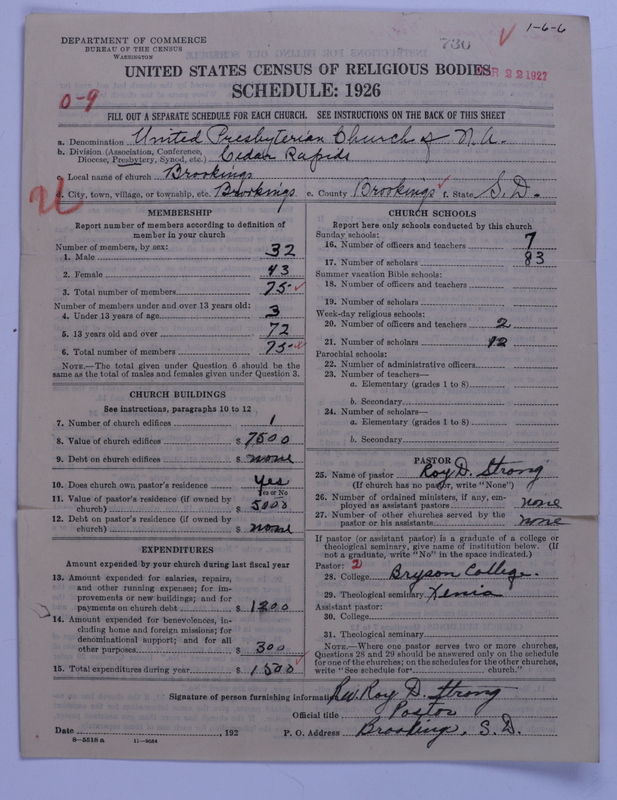 1-6-6
730
DEPARTMENT OF COMMERCE
BUREAU OF THE CENSUS
WASHINGTON
UNITED STATES CENSUS OF RELIGIOUS BODIES
R 22 1927
SCHEDULE: 1926
0-9
FILL OUT A SEPARATE SCHEDULE FOR EACH CHURCH. SEE INSTRUCTIONS ON THE BACK OF THIS SHEET
a. Denomination United Presbyterian Church of N.A.
b. Division (Association, Conference,
Diocese, Presbytery, Synod, etc.) Cedar Rapids
c. Local name of church Brookings
d. City, town, village, or township, etc. Brookings e. County Brookings f. State S.D.
MEMBERSHIP
Report number of members according to definition of
member in your church
Number of members, by sex:
1. Male 32
2. Female 43
3. Total number of members 75
Number of members under and over 13 years old:
4. Under 13 years of age 3
5. 13 years old and over 72
6. Total number of members 75
NOTE.—The total given under Question 6 should be the
same as the total of males and females given under Question 3.
CHURCH BUILDINGS
See instructions, paragraphs 10 to 12
7. Number of church edifices 1
8. Value of church edifices $ 7500
9. Debt on church edifices $ none
10. Does church own pastor's residence Yes
Yes or No
11. Value of pastor's residence (if owned by
church) $ 5000
12. Debt on pastor's residence (if owned by
church) $ none
EXPENDITURES
Amount expended by your church during last fiscal year
13. Amount expended for salaries, repairs,
and other running expenses; for im-
provements or new buildings; and for
payments on church debt $ 1200
14. Amount expended for benevolences, in-
cluding home and foreign missions; for
denominational support; and for all
other purposes $ 300
15. Total expenditures during year $ 1500
CHURCH SCHOOLS
Report here only schools conducted by this church
Sunday schools:
16. Number of officers and teachers 7
17. Number of scholars 83
Summer vacation Bible schools:
18. Number of officers and teachers
19. Number of scholars
Week-day religious schools:
20. Number of officers and teachers 2
21. Number of scholars 12
Parochial schools:
22. Number of administrative officers
23. Number of teachers—
a. Elementary (grades 1 to 8)
b. Secondary
24. Number of scholars—
a. Elementary (grades 1 to 8)
b. Secondary
PASTOR
25. Name of pastor Roy D. Strong
(If church has no pastor, write "None")
26. Number of ordained ministers, if any, em-
ployed as assistant pastors none
27. Number of other churches served by the
pastor or his assistants none
If pastor (or assistant pastor) is a graduate of a college or
theological seminary, give name of institution below. (If
not a graduate, write "No" in the space indicated.)
Pastor: 2
28. College Bryson College.
29. Theological seminary Xenia
Assistant pastor:
30. College
31. Theological seminary
NOTE.—Where one pastor serves two or more churches,
Questions 28 and 29 should be answered only on the schedule
for one of the churches; on the schedules for the other churches,
write "See schedule for church."
Signature of person furnishing information Rev. Roy D. Strong
Official title Pastor
Date , 192 P. O. Address Brookings, S.D.
8-5518 a 11-9054